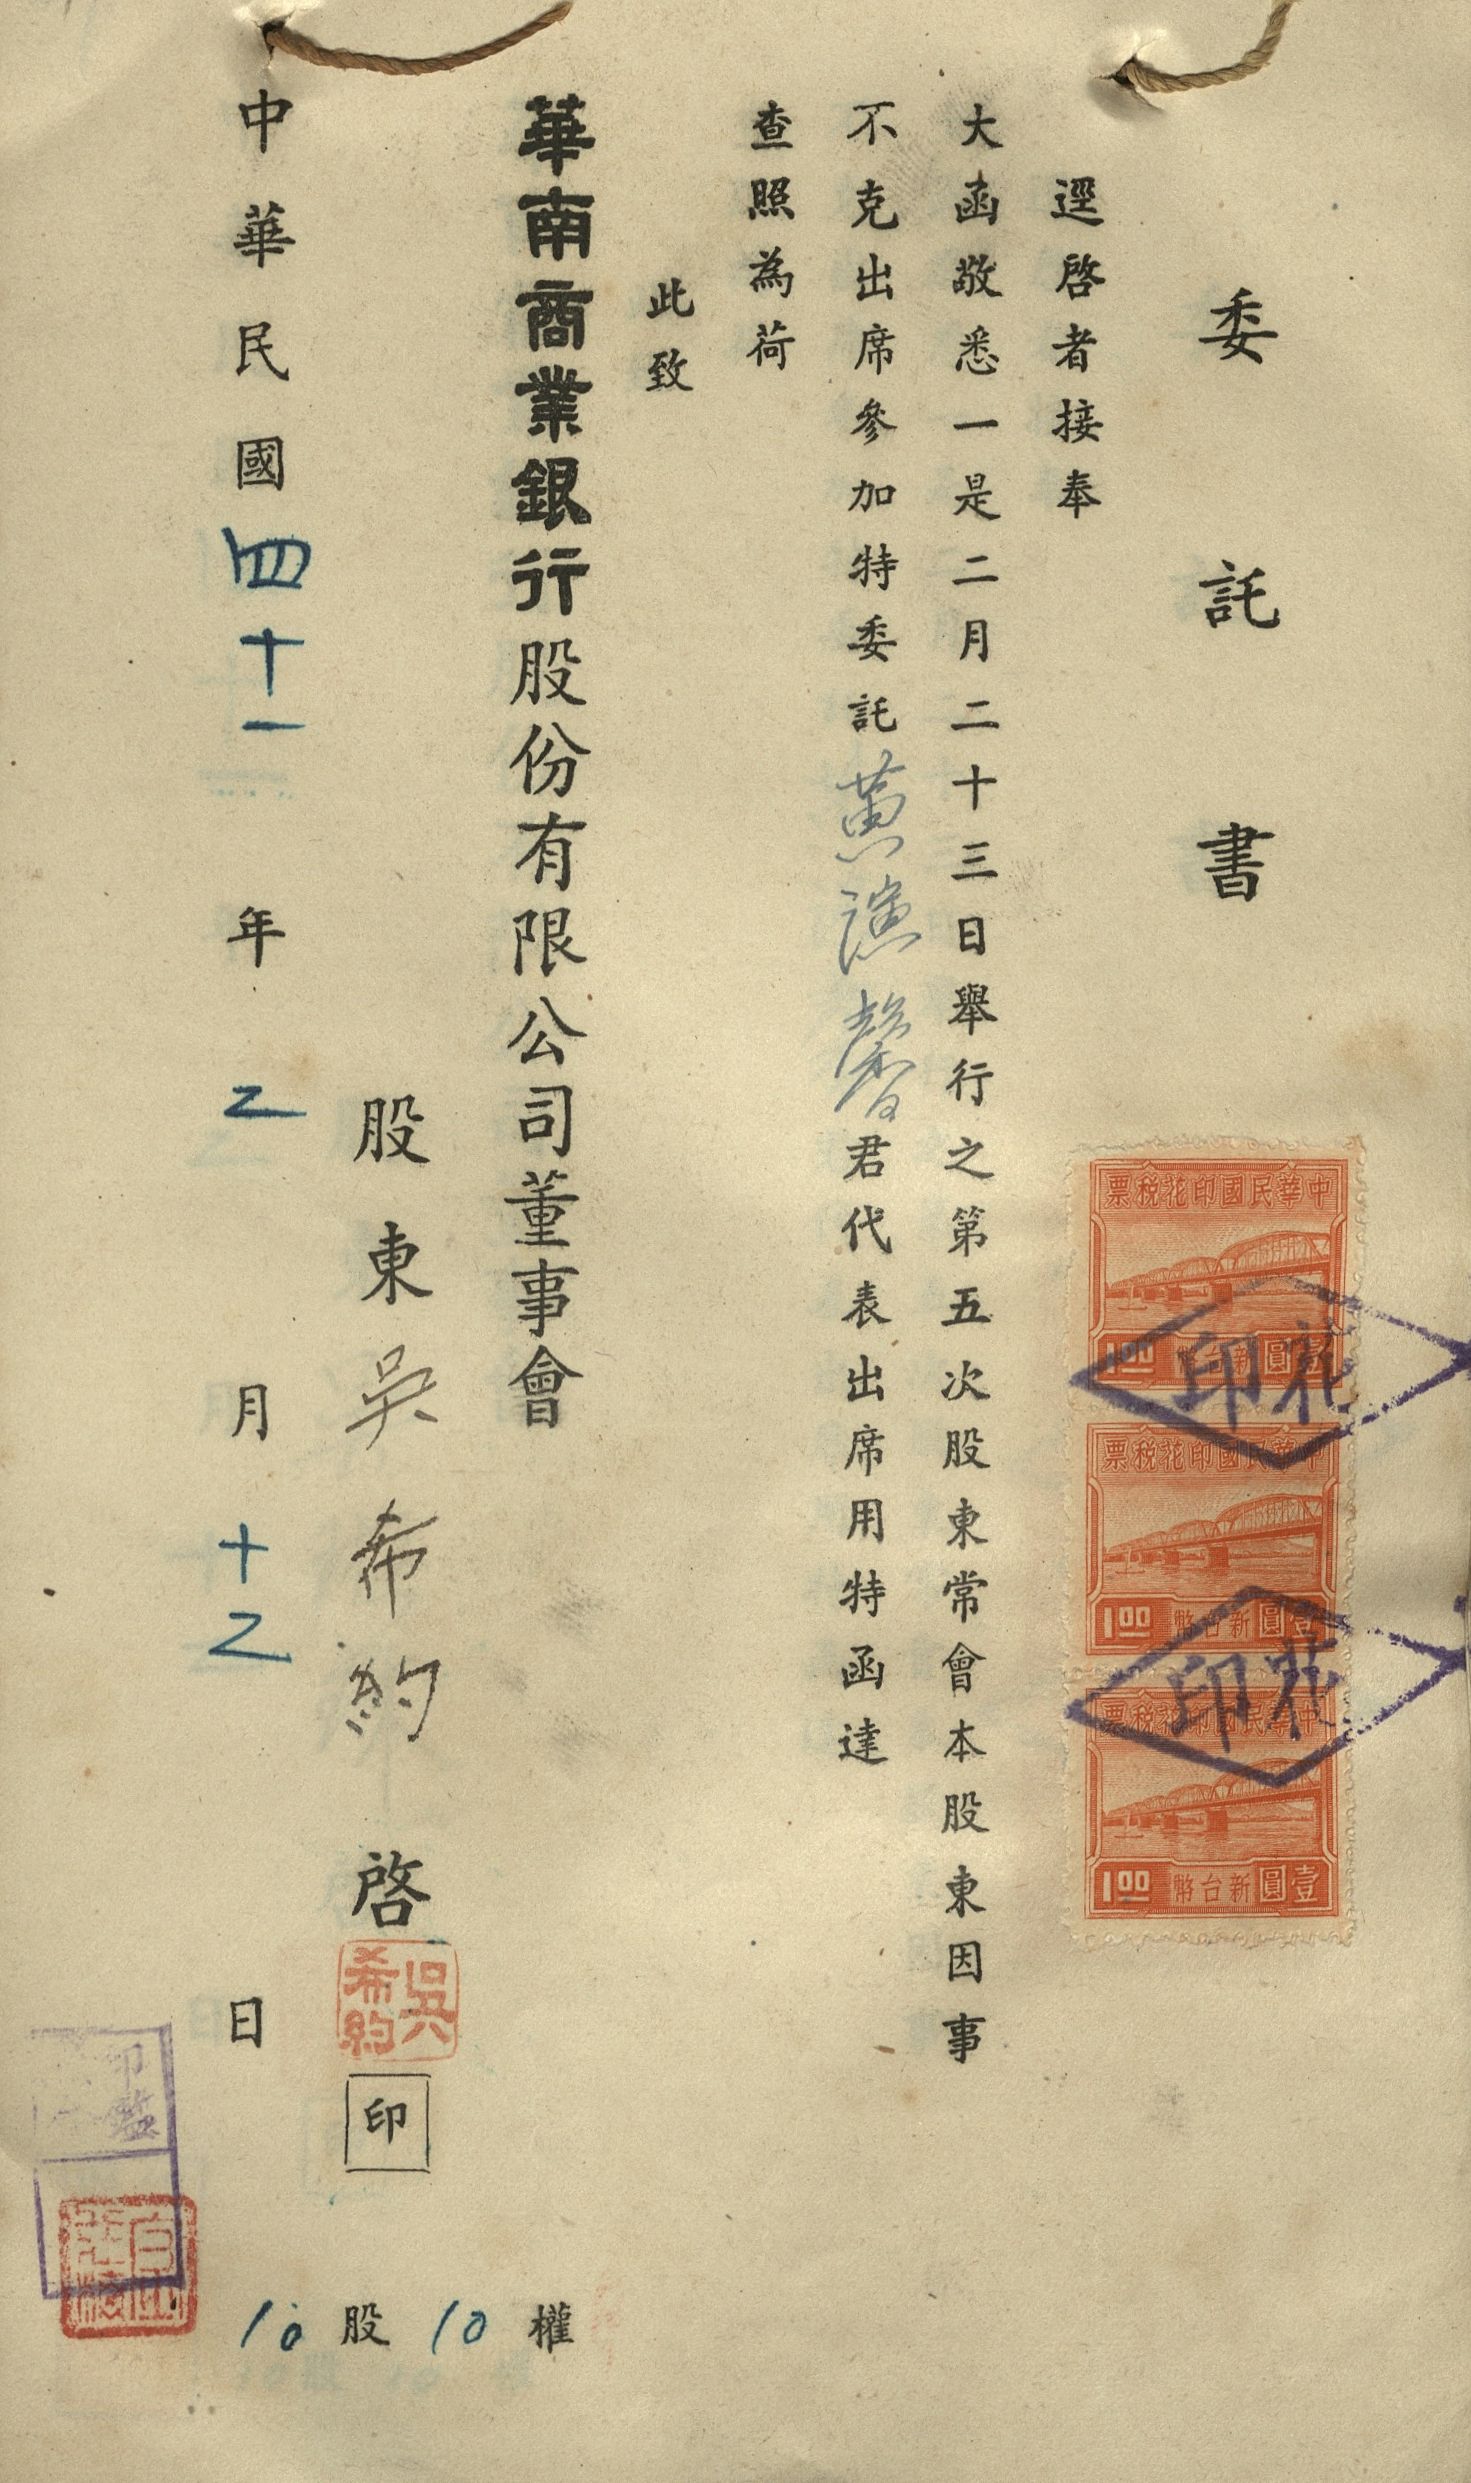 委託書
逕啓者接奉
大函敬悉一是二月二十三日舉行之第五次股東常會本股東因事
不克出席參加特委託黃漁馨君代表出席用特函達
查照為荷
此致
華南商業銀行股份有限公司董事會
股東吳希約啓
吳希約
印
中華民國四十一年二月十二日
10股10權
中華民國印花稅票
壹圓新台幣
1.00
印花
中華民國印花稅票
壹圓新台幣
1.00
印花
中華民國印花稅票
壹圓新台幣
1.00
印鑑